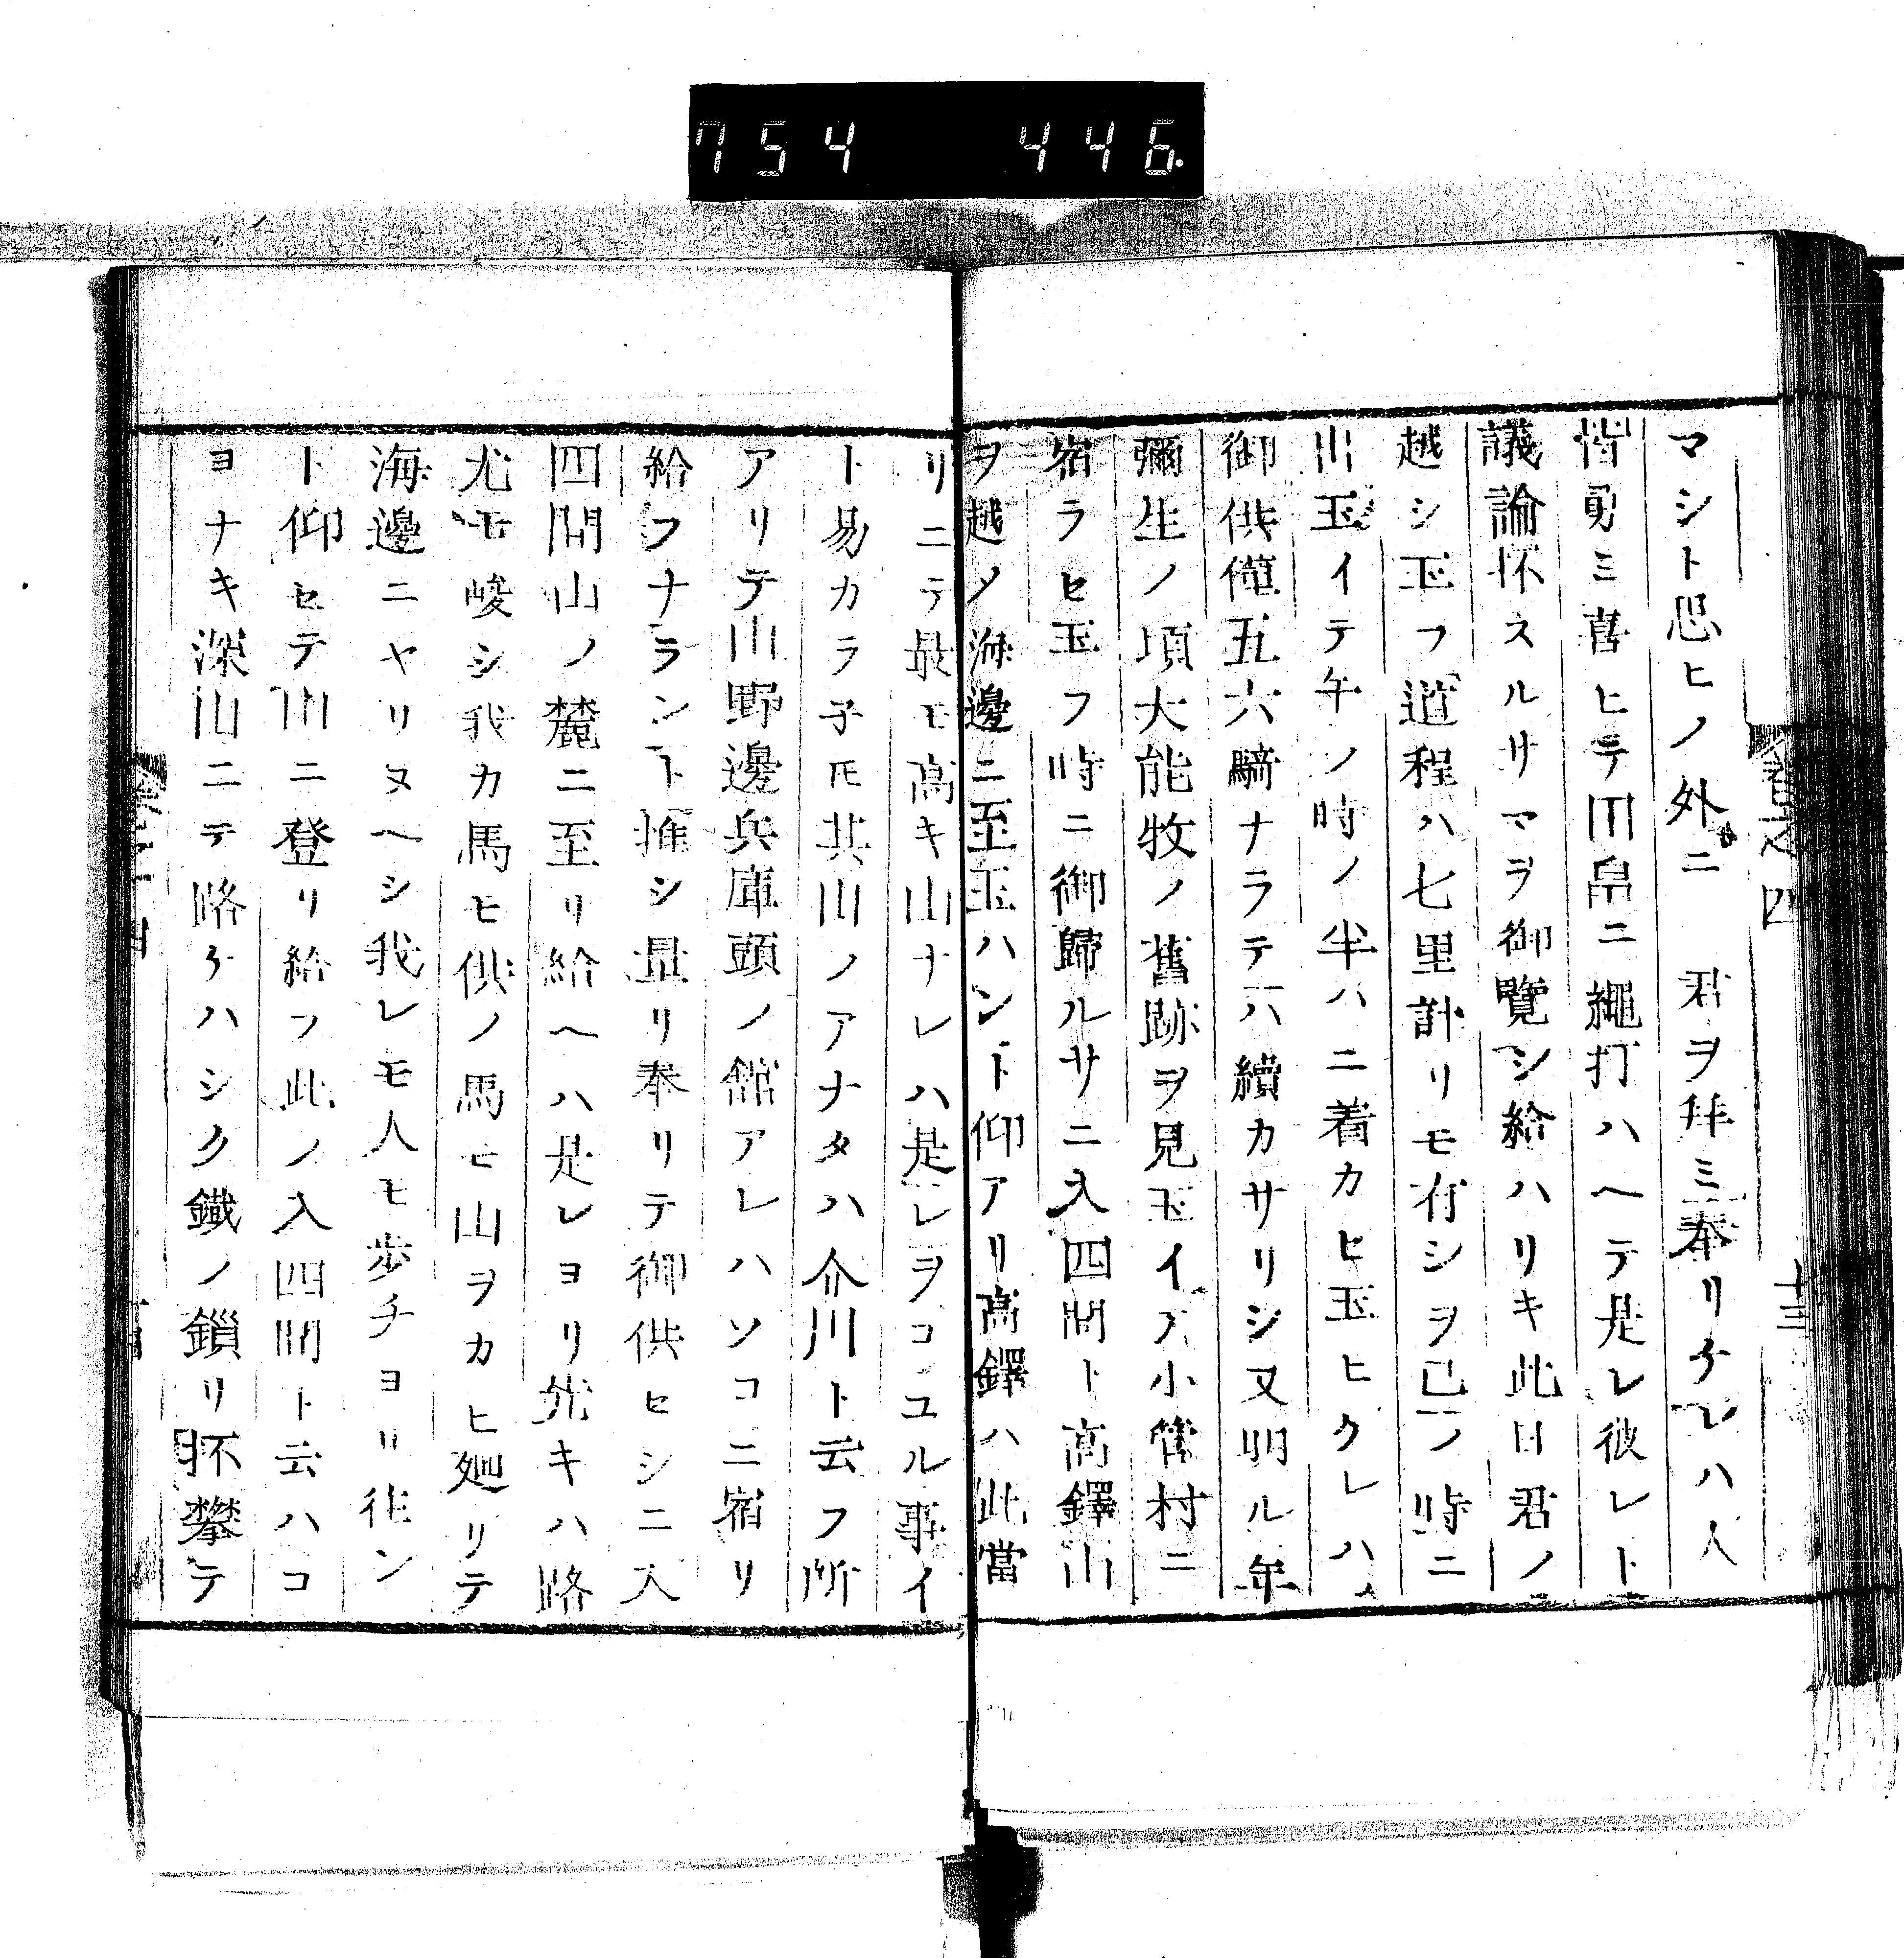 754 446.
卷之四
十三
マシト思ヒノ外ニ 君ヲ拜ミ奉リケレハ人
皆勇ミ喜ヒテ田畠ニ繩打ハヘテ是レ彼レト
議論抔スルサマヲ御覽シ給ハリキ此日君ノ
越シ玉フ道程ハ七里計リモ有シヲ已ノ時ニ
出玉イテ午ノ時ノ半ハニ着カヒ玉ヒクレハ
御供僅五六騎ナラテハ續カサリシ又明ル年
彌生ノ頃大能牧ノ舊跡ヲ見玉イテ小菅村ニ
宿ラヒ玉フ時ニ御歸ルサニ入四間ト高鐸山
ヲ越メ海邊ニ至玉ハント仰アリ高鐸ハ此當
リニテ最モ高キ山ナレハ是レヲコユル事イ
ト易カラ子𪜈其川ノアナタハ介川ト云フ所
アリテ山野邊兵庫頭ノ館アレハソコニ宿リ
給フナラント推シ量リ奉リテ御供セシニ入
四間山ノ麓ニ至リ給ヘハ是レヨリ先キハ路
尤モ峻シ我カ馬ヒ供ノ馬モ山ヲカヒ廻リテ
海邊ニヤリヌヘシ我レモ人モ歩チヨリ往ン
ト仰セテ山ニ登リ給フ此ノ入四間ト云ハコ
ヨナキ深山ニテ路ケハシク鐵ノ鎖リ抔攀テ